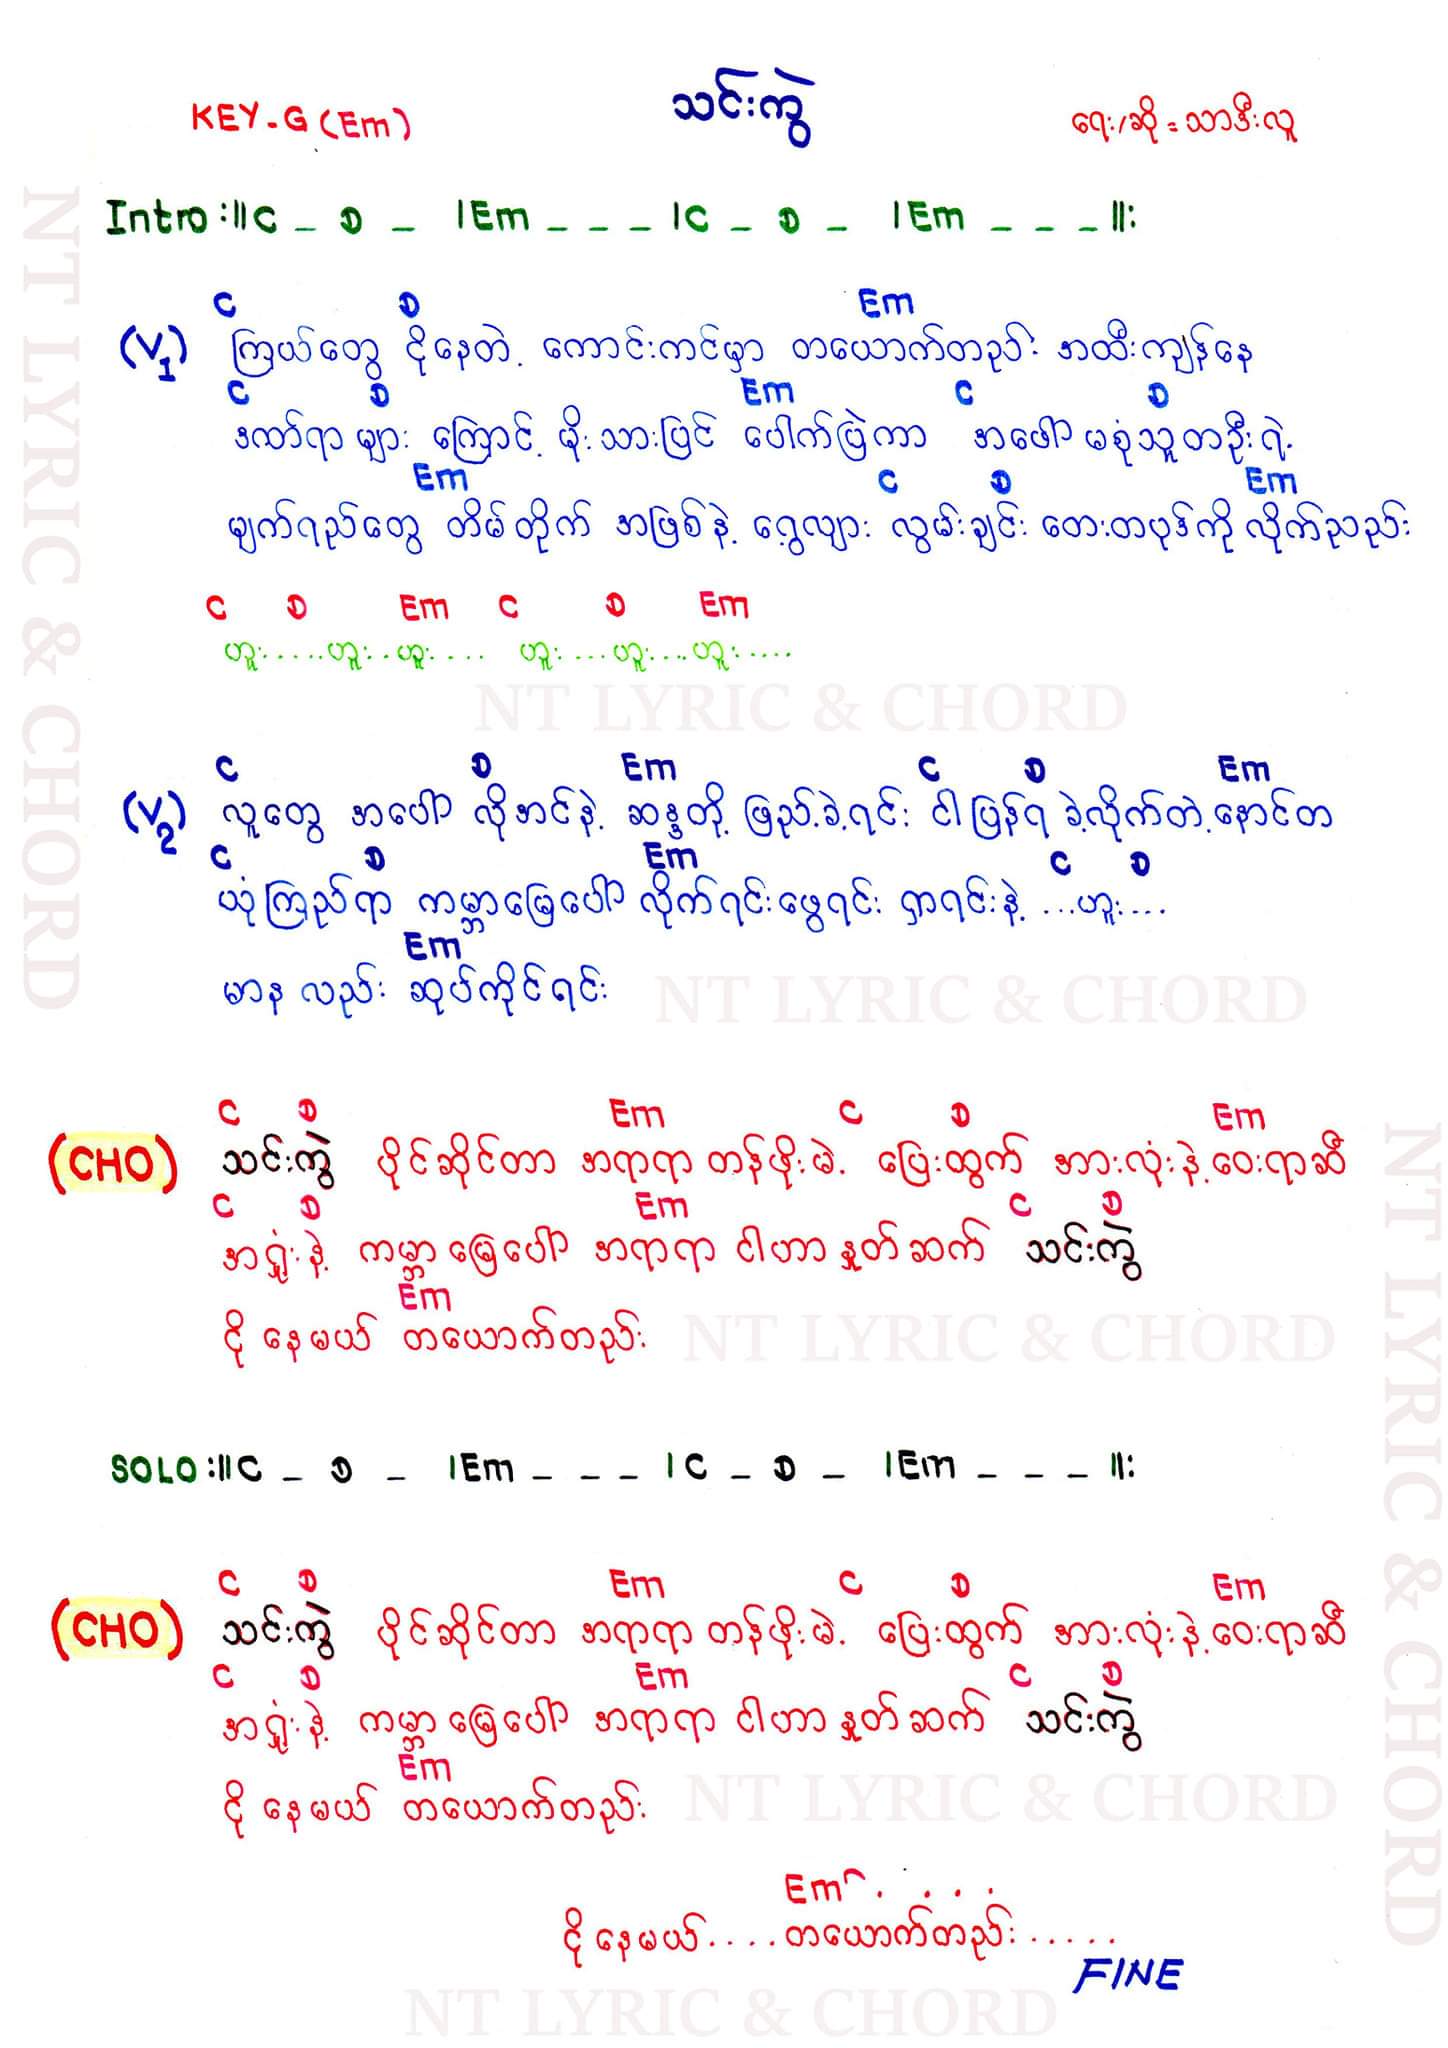 သင်းကွဲ
KEY-G (Em)
ရေး/ဆို = သာဒီးလူ
Intro :||C _ D _ |Em _ _ _ |C _ D _ |Em _ _ _ ||:
C D Em
(V1) ကြယ်တွေ ငိုနေတဲ့ ကောင်းကင်မှာ တယောက်တည်း အထီးကျန်နေ
C D Em C D
ဒဏ်ရာများ ကြောင့် မိုးသားပြင် ပေါက်ပြဲကာ အဖော် မစုံသူတဦးရဲ့
Em C D Em
မျက်ရည်တွေ တိမ်တိုက် အဖြစ်နဲ့ ရွေ့လျား လွမ်းချင်း တေးတပုဒ်ကို လိုက်ညည်း
C D Em C D Em
ဟူး.....ဟူး..ဟူး.... ဟူး....ဟူး....ဟူး....
NT LYRIC & CHORD
C D Em C D Em
(V2) လူတွေ အပေါ် လိုအင်နဲ့ ဆန္ဒတို့ ဖြည့်ခဲ့ရင်း ငါပြန်ရ ခဲ့လိုက်တဲ့နောင်တ
C D Em C D
ယုံကြည်ရာ ကမ္ဘာမြေပေါ် လိုက်ရင်းဖွေရင်း ရှာရင်းနဲ့ ...ဟူး...
Em
မာန လည်း ဆုပ်ကိုင်ရင်း
NT LYRIC & CHORD
C D Em C D Em
(CHO) သင်းကွဲ ပိုင်ဆိုင်တာ အရာရာ တန်ဖိုးမဲ့ ပြေးထွက် အားလုံးနဲ့ဝေးရာဆီ
C D Em C D
အရှုံးနဲ့ ကမ္ဘာမြေပေါ် အရာရာ ငါဟာ နှုတ်ဆက် သင်းကွဲ
Em
ငို နေမယ် တယောက်တည်း
NT LYRIC & CHORD
SOLO :||C _ D _ |Em _ _ _ |C _ D _ |Em _ _ _ ||:
C D Em C D Em
(CHO) သင်းကွဲ ပိုင်ဆိုင်တာ အရာရာ တန်ဖိုးမဲ့ ပြေးထွက် အားလုံးနဲ့ဝေးရာဆီ
C D Em C D
အရှုံးနဲ့ ကမ္ဘာမြေပေါ် အရာရာ ငါဟာ နှုတ်ဆက် သင်းကွဲ
Em
ငို နေမယ် တယောက်တည်း
NT LYRIC & CHORD
Em
ငို နေမယ်....တယောက်တည်း.....
FINE
NT LYRIC & CHORD
NT LYRIC & CHORD
NT LYRIC & CHORD